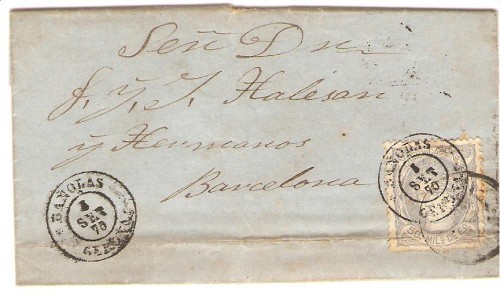 Señ Dn
J. Y. J. Halesan
y Hermanos
Barcelona
BAÑOLAS
1
SET
70
GERONA
BAÑOLAS
1
SET
70
GERONA
50 MILS DE E